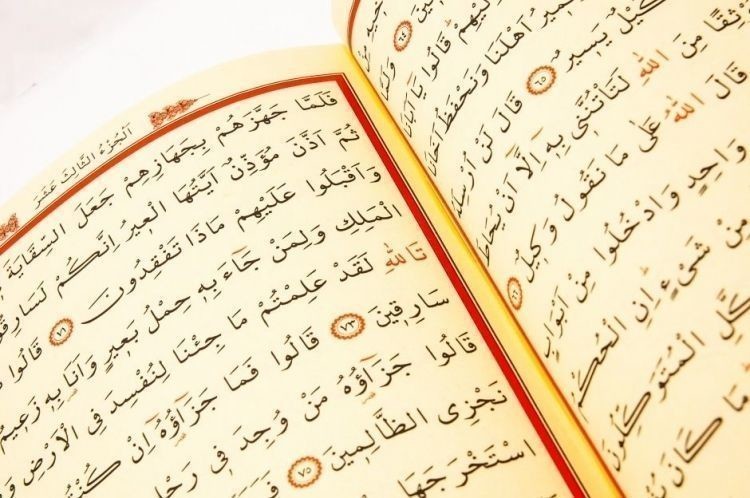 مِينَ ٦٤
اِلَيْهِمْ قَالُوا يَا اَبَانَا
اَهْلَنَا وَنَحْفَظُ
كَيْلٌ يَسِيرٌ ٦٥ قَالَ لَنْ
مِنَ اللّٰهِ لَتَأْتُنَّنِى بِهِ اِلَّا اَنْ يُحَاطَ
قَالَ اللّٰهُ عَلٰى مَا نَقُولُ وَكِيلٌ
وَاحِدٍ وَادْخُلُوا مِنْ اَبْوَابٍ
مِنْ شَىْءٍ اِنِ الْحُكْمُ
الْمُتَوَكِّلُونَ
مَا كَانَ
اَلْجُزْءُ الثَّالِثَ عَشَرَ
فَلَمَّا جَهَّزَهُمْ بِجَهَازِهِمْ جَعَلَ السِّقَايَةَ
ثُمَّ اَذَّنَ مُؤَذِّنٌ اَيَّتُهَا الْعِيرُ اِنَّكُمْ لَسَارِقُونَ
وَاَقْبَلُوا عَلَيْهِمْ مَاذَا تَفْقِدُونَ ٧١ قَالُوا
الْمَلِكِ وَلِمَنْ جَٓاءَ بِهِ حِمْلُ بَعِيرٍ وَاَنَا بِهِ زَعِيمٌ
تَاللّٰهِ لَقَدْ عَلِمْتُمْ مَا جِئْنَا لِنُفْسِدَ فِى الْاَرْضِ
سَارِقِينَ ٧٣ قَالُوا فَمَا جَزَٓاؤُهُ اِنْ كُنْتُمْ
قَالُوا جَزَٓاؤُهُ مَنْ وُجِدَ فِى
نَجْزِى الظَّالِمِينَ ٧٥
اسْتَخْرَجَهَا